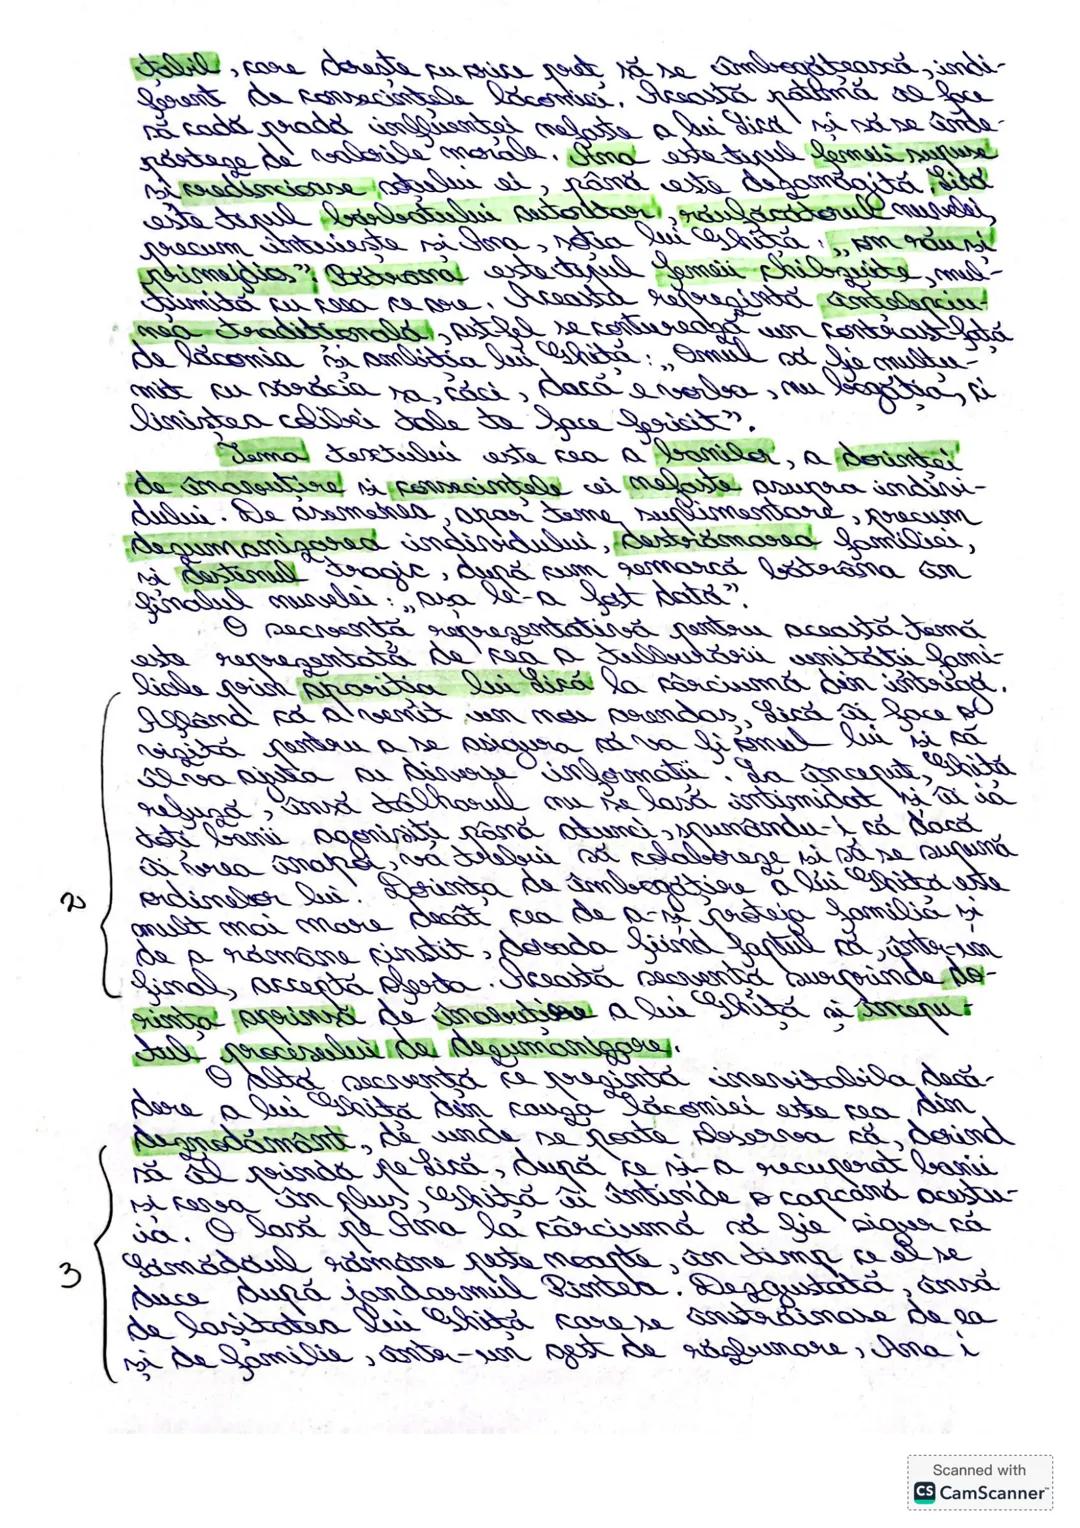 tabil, care dorește cu orice preț să se îmbogățească, indi-
ferent de consecințele lăcomiei. Această patimă îl face
să cadă pradă influenței nefaste a lui Lică și să se înde-
părteze de valorile morale. Ana este tipul femeii supuse
și credincioase soțului ei, până este dezamăgită. Lică
este tipul bărbatului autoritar, răufăcătorul nuvelei,
precum intuiește și Ana, soția lui Ghiță: „om rău și
primejdios”. Bătrâna este tipul femeii chibzuite, mul-
țumită cu ceea ce are. Aceasta reprezintă înțelepciu-
nea tradițională, astfel se conturează un contrast față
de lăcomia și ambiția lui Ghiță: „Omul să fie mulțu-
mit cu sărăcia sa, căci, dacă e vorba, nu bogăția, ci
liniștea colibei tale te face fericit”.
Tema textului este cea a banilor, a dorinței
de înavuțire și consecințele ei nefaste asupra indivi-
dului. De asemenea, apar teme suplimentare, precum
dezumanizarea individului, destrămarea familiei,
și destinul tragic, după cum remarcă bătrâna în
finalul nuvelei: „așa le-a fost dată”.
O secvență reprezentativă pentru această temă
este reprezentată de cea a tulburării unității fami-
liale prin apariția lui Lică la cârciumă din intrigă.
Aflând că a venit un nou arendaș, Lică îi face o
vizită pentru a se asigura că va fi omul lui și că
îl va ajuta cu diverse informații. La început, Ghiță
refuză, însă tâlharul nu se lasă intimidat și îi ia
toți banii agonisiți până atunci, spunându-i că dacă
îi vrea înapoi, va trebui să colaboreze și să se supună
ordinelor lui. Dorința de îmbogățire a lui Ghiță este
mult mai mare decât cea de a-și proteja familia și
de a rămâne cinstit, dovada fiind faptul că, într-un
final, acceptă oferta. Această secvență surprinde do-
rința aprinsă de înavuțire a lui Ghiță și încep-
utul procesului de dezumanizare.
O altă secvență ce prezintă inevitabila decă-
dere a lui Ghiță din cauza lăcomiei este cea din
deznodământ, de unde se poate observa că, dorind
să îl prindă pe Lică, după ce și-a recuperat banii
și ceva în plus, Ghiță îi întinde o capcană acestu-
ia. O lasă pe Ana la cârciumă să fie sigur că
Sămădăul rămâne peste noapte, în timp ce el se
duce după jandarmul Pintea. Dezgustată, însă
de lașitatea lui Ghiță care se înstrăinase de ea
și de familie, într-un gest de răzbunare, Ana i
2
3
Scanned with
CS CamScanner